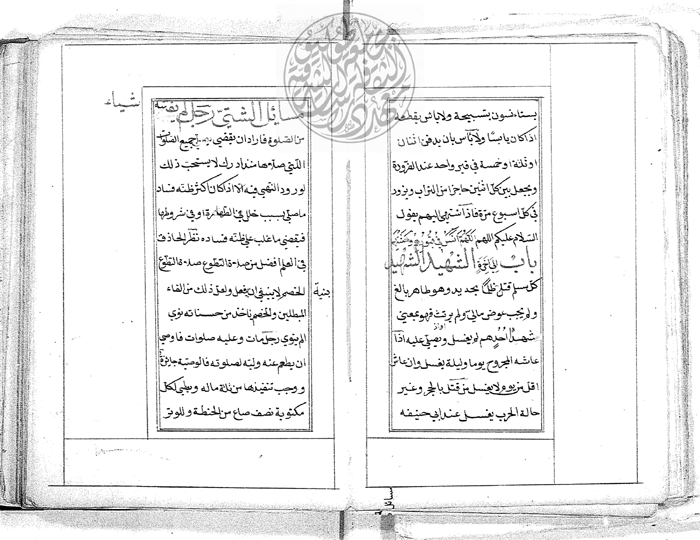 يستانسون بتسبيحة ولا باس بقطعه
اذا كان يابسا ولا باس بان يدفن اثنان
او ثلثة او خمسة في قبر واحد عند الضرورة
ويجعل بين كل اثنين حاجزا من التراب ويزور
في كل اسبوع مرة فاذا اليهم يقول
السلام عليكم اللهم
باب الشهيد الشهيد
كل مسلم قتل ظلما بحديد وهو طاهر بالغ
ولم يجب عوض مالي ولم يرتث فهو بمعنى
شهداء احد لم يغسل ويصلى عليه اذا
عاش المجروح يوما وليلة يغسل وان عاش
اقل من يوم ولا يغسل من قتل بالحجر وغير
حالة الحرب يغسل عند ابي حنيفه
مسائل
شياء
مسائل الشتى رجل لم يفته
من الصلوة فاراد ان يقضي جميع الصلوات
التي صلاها منذ ادرك لا يستحب ذلك
لورود النهي فيه الا اذا كان اكثر ظنه فساد
ما صلى بسبب خلل في الطهارة او في شروطها
فيقضي ما غلب على ظنه فساده نظر الحاذق
في العلم افضل من صلوة التطوع صلوة التطوع
الخصم لا ينبغي ان يفعل ذلك من القاء
جنية
المبطلين والخصم ياخذ من حسناته نوى
الم ينوي رجل مات وعليه صلوات فاوصى
ان يطعم عنه وليه لصلوته فالوصية جائزة
ووجب تنفيذها من ثلث ماله ويعطى لكل
مكتوبة نصف صاع من الحنطة وللوتر